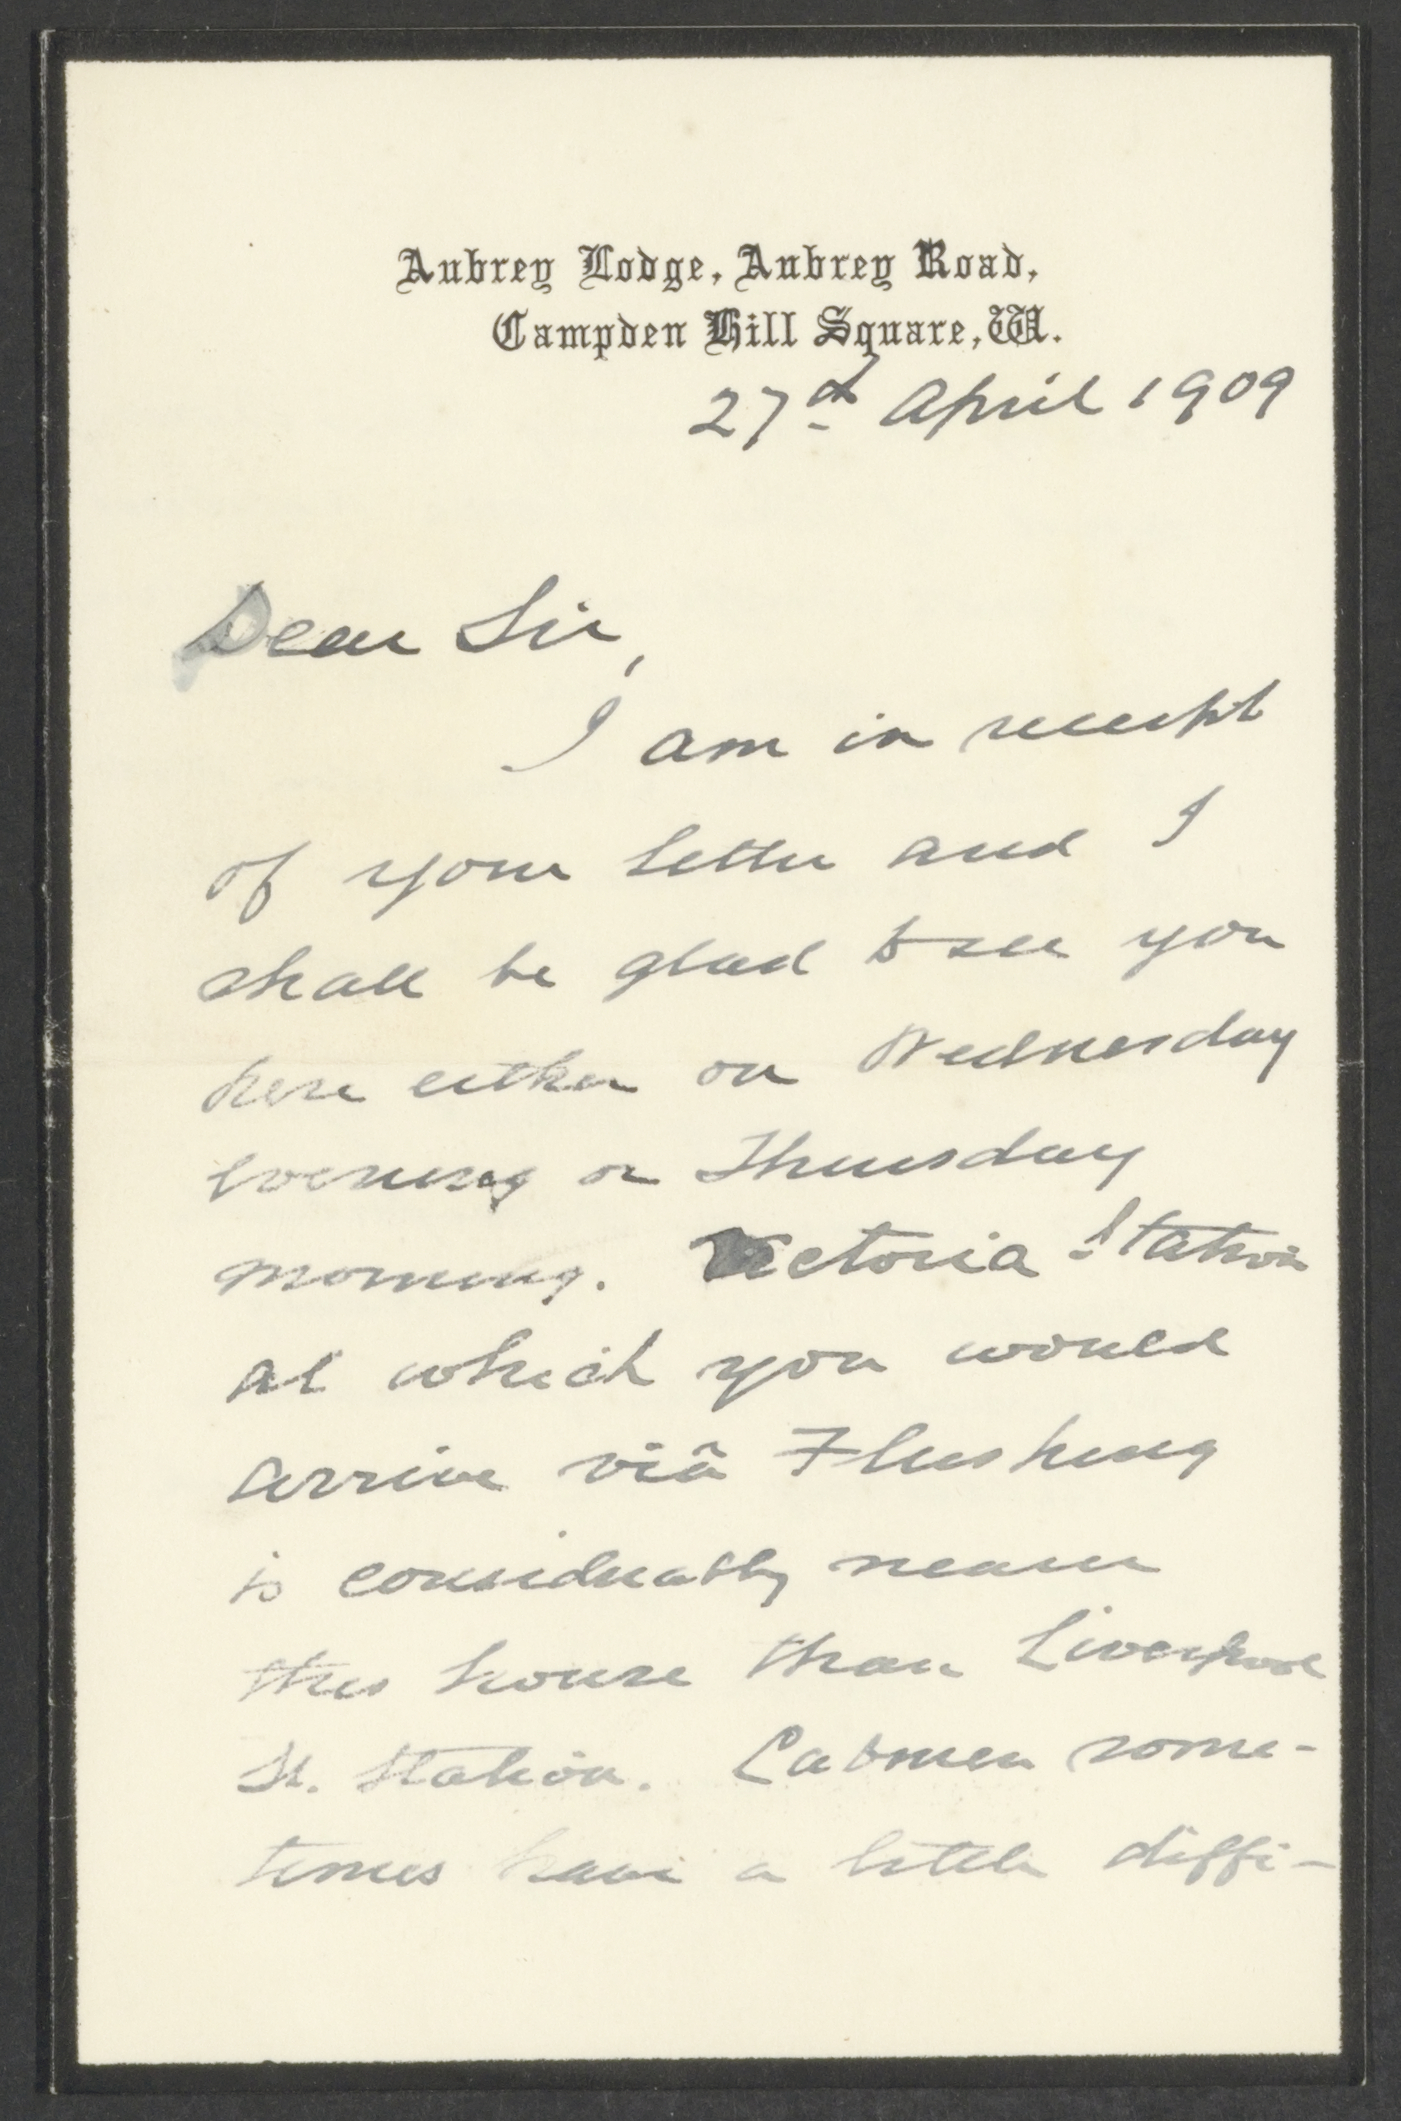 Aubrey Lodge, Aubrey Road,
Campden Hill Square, W.
27th April 1909
Dear Sir,
I am in receipt
of your letter and I
shall be glad to see you
here either on Wednesday
evening or Thursday
morning. Victoria Station
at which you would
arrive viâ Flushing
is considerably nearer
this house than Liverpool
St. Station. Cabmen some-
times have a little diffi-